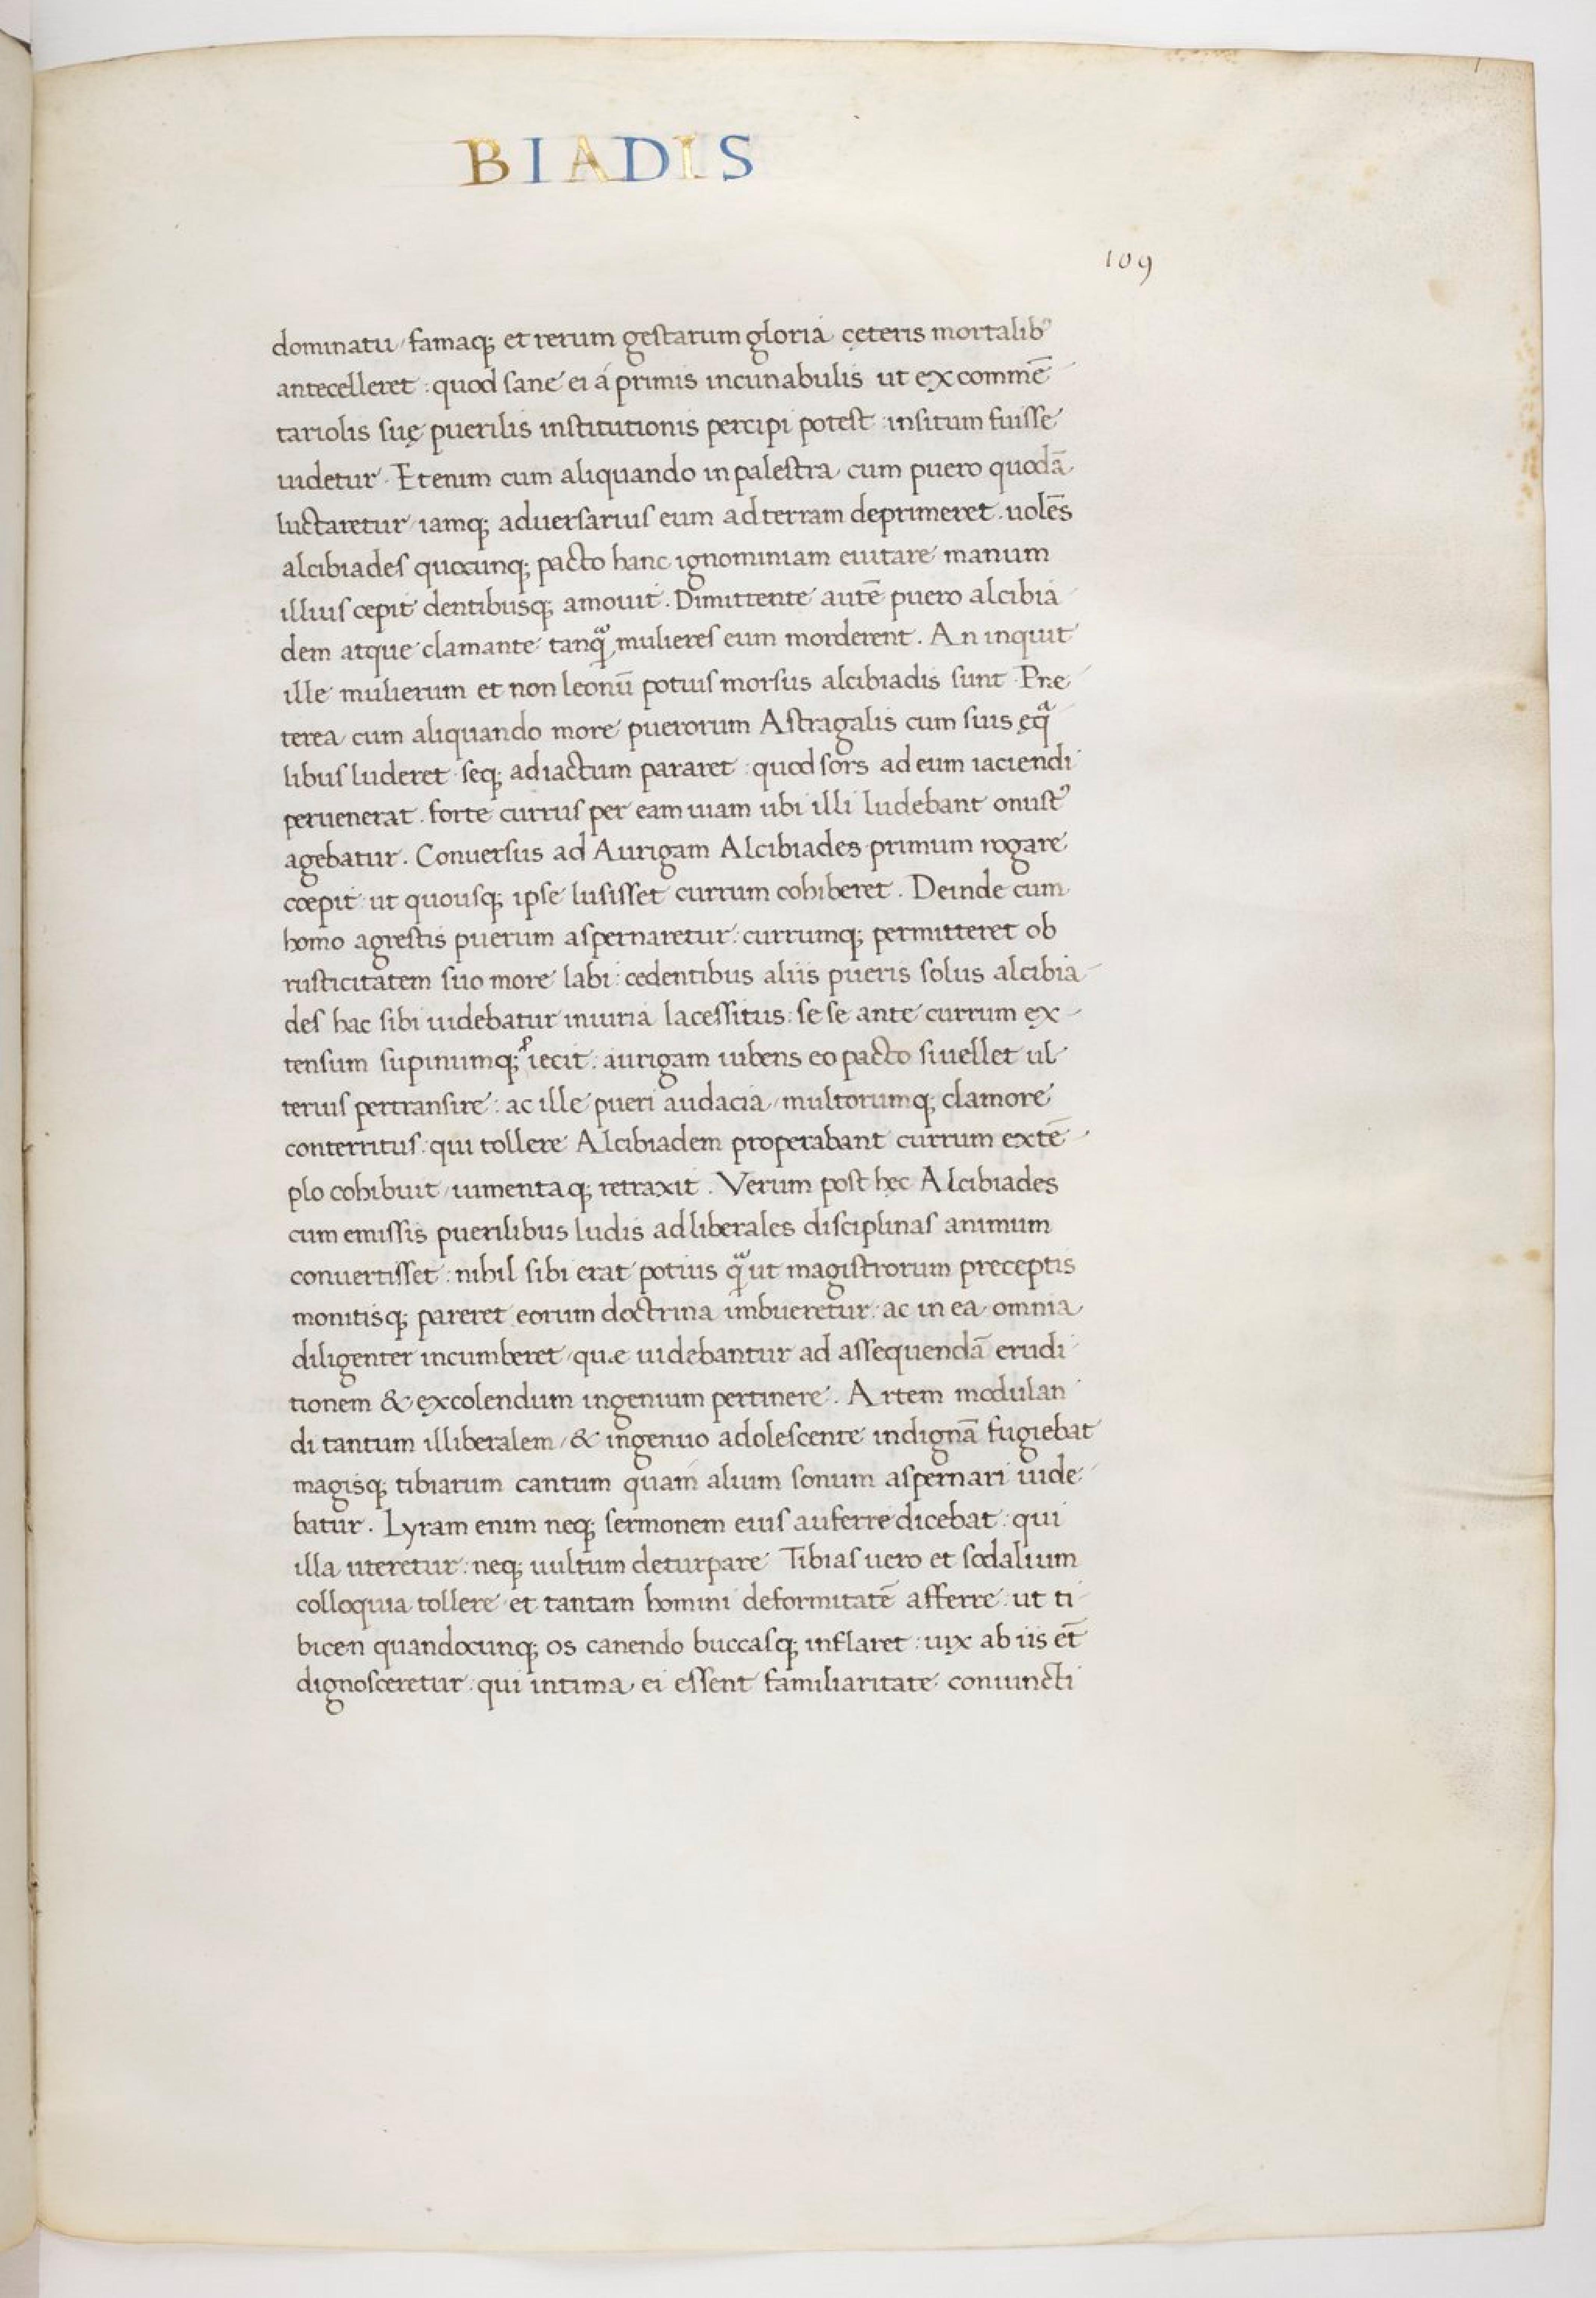 BIADIS
109
dominatu, famaq; et rerum gestarum gloria cęteris mortalibꝰ
antecelleret: quod sane ei á primis incunabulis ut ex commē
tariolis suę puerilis institutionis percipi potest: insitum fuisse
uidetur. Etenim cum aliquando in palestra cum puero quodā
luctaretur, iamq; aduersarius eum ad terram deprimeret. uolēs
alcibiades quocunq; pacto hanc ignominiam euitare manum
illius cepit dentibusq; amouit. Dimittente autē puero alcibia
dem atque clamante tanqᷓ mulieres eum morderent. An inquit
ille mulierum et non leonū potius morsus alcibiadis sunt. Præ
terea cum aliquando more puerorum Astragalis cum suis ęqᷓ
libus luderet seq; ad iactum pararet: quod sors ad eum iaciendi
peruenerat. forte currus per eam uiam ubi illi ludebant onustꝰ
agebatur. Conuersus ad Aurigam Alcibiades primum rogare
cœpit: ut quousq; ipse lusisset currum cohiberet. Deinde cum
homo agrestis puerum aspernaretur: currumq; permitteret ob
rusticitatem suo more labi: cedentibus aliis pueris solus alcibia-
des hac sibi uidebatur iniuria lacessitus: se se ante currum ex-
tensum supinumq; ꝓiecit: aurigam iubens eo pacto si uellet ul-
terius pertransire: ac ille pueri audacia, multorumq; clamore
conterritus: qui tollere Alcibiadem properabant currum extē-
plo cohibuit, iumentaq; retraxit. Verum post hęc Alcibiades
cum emissis puerilibus ludis ad liberales disciplinas animum
conuertisset: nihil sibi erat potius qᷓ ut magistrorum preceptis
monitisq; pareret eorum doctrina imbueretur: ac in ea omnia
diligenter incumberet, quæ uidebantur ad assequendā erudi
tionem & excolendum ingenium pertinere. Artem modulan
di tantum illiberalem, & ingenuo adolescente indignā fugiebat
magisq; tibiarum cantum quam alium sonum aspernari uide-
batur. Lyram enim neq; sermonem eius auferre dicebat: qui
illa uteretur: neq; uultum deturpare Tibias uero et sodalium
colloquia tollere et tantam homini deformitatē afferre: ut ti
bicen quandocunq; os canendo buccasq; inflaret: uix ab iis ēt
dignosceretur: qui intima ei essent familiaritate coniuncti